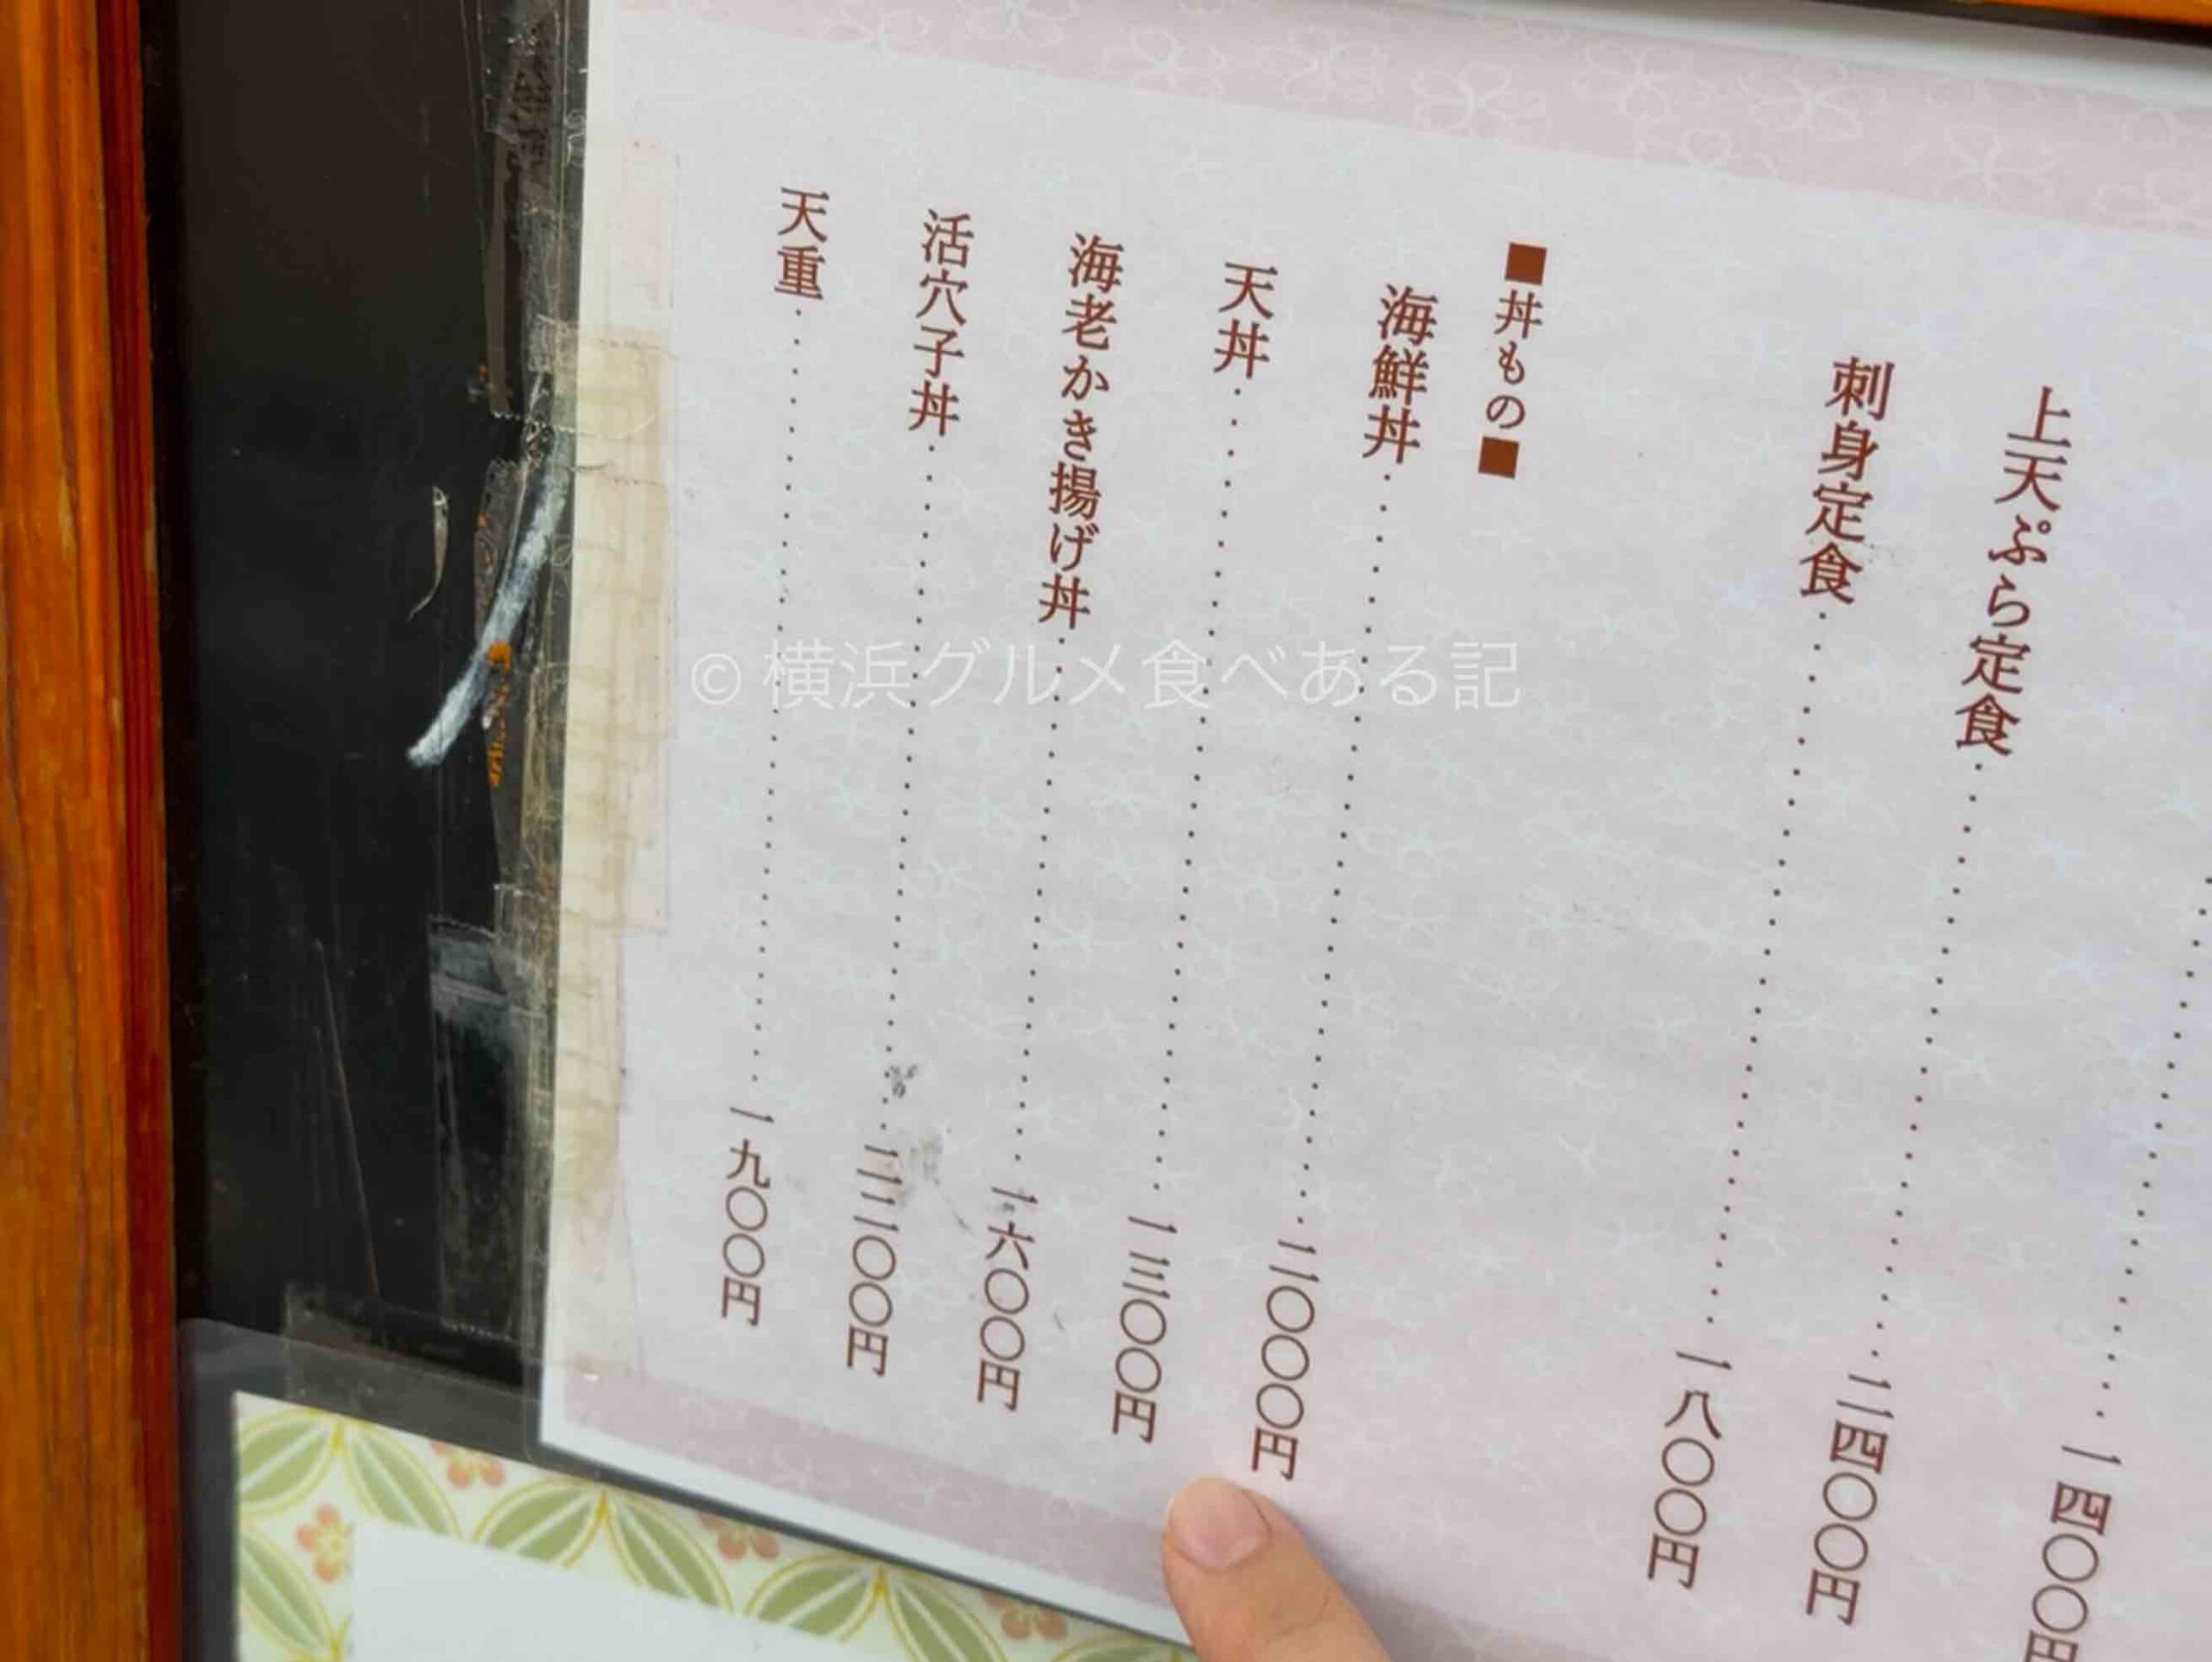 一四〇〇円
上天ぷら定食 二四〇〇円
刺身定食 一八〇〇円
■丼もの■
海鮮丼 二〇〇〇円
天丼 一三〇〇円
海老かき揚げ丼 一六〇〇円
活穴子丼 二二〇〇円
天重 一九〇〇円
© 横浜グルメ食べある記